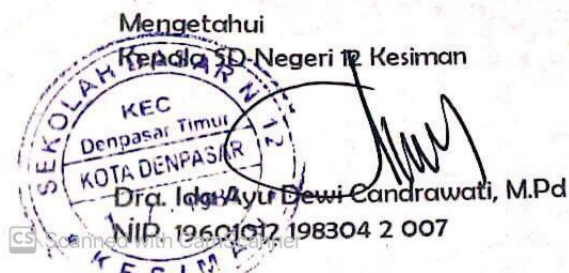 Mengetahui
Kepala SD Negeri 12 Kesiman
SEKOLAH DASAR N 12
KEC
Denpasar Timur
KOTA DENPASAR
KESIMAN
Dra. Ida Ayu Dewi Candrawati, M.Pd
NIP. 19601012 198304 2 007
CS Scanned with CamScanner